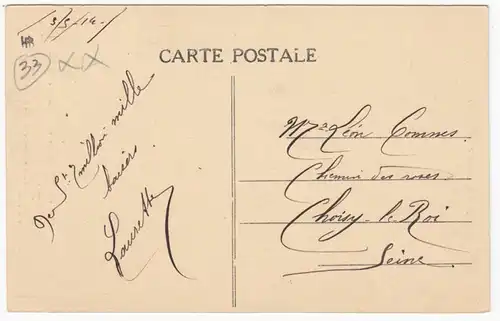 3/5/14.
33
CARTE POSTALE
De St 7 million mille
baisers
Laurette
Léon Commes.
Chemin des roses.
Choisy-le-Roi
Seine.